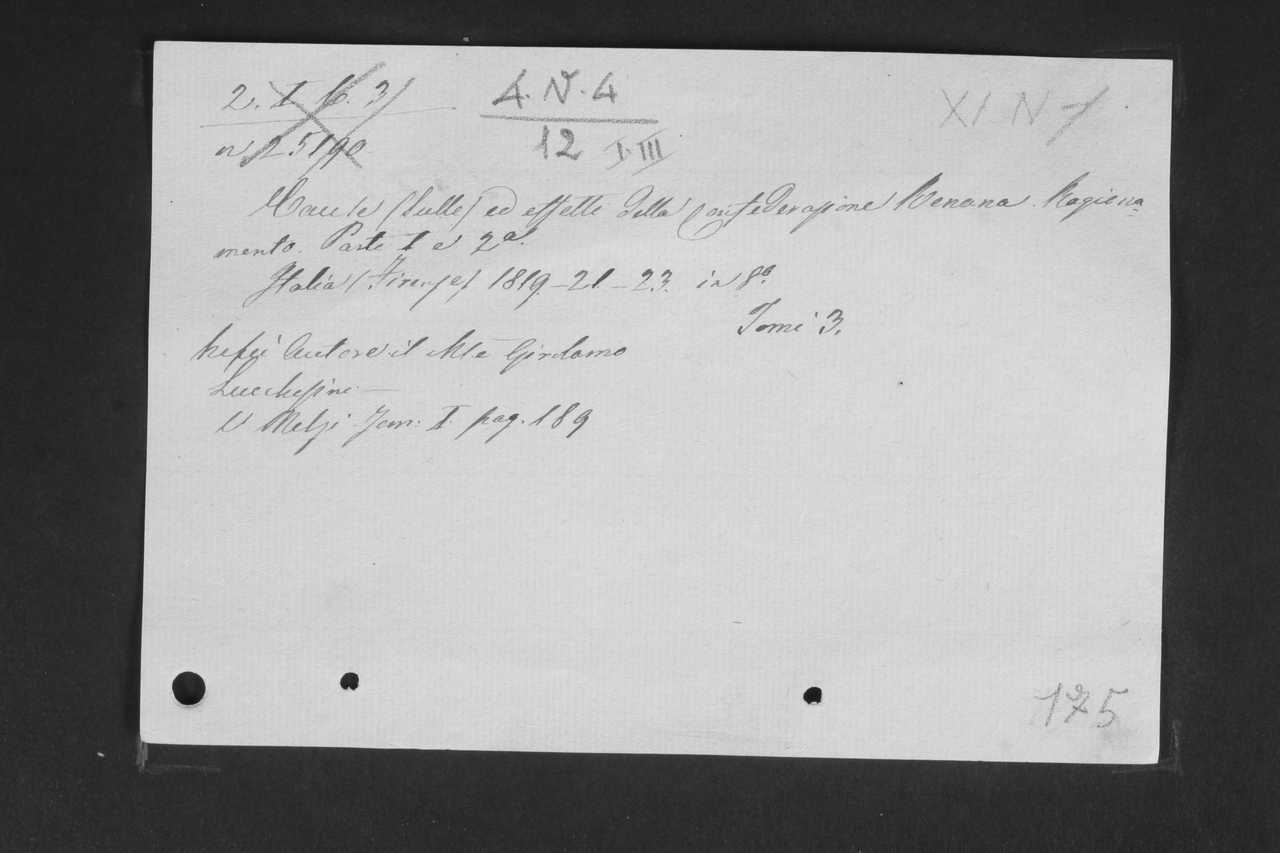 2. I. 6. 3
4. N. 4
XI N
n. 25190
12 I-III
Cause (Sulle) ed effetti della Confederazione Renana. Ragiona-
mento. Parte 1 e 2a.
Italia (Firenze) 1819-21-23. in 8o
Tomi 3.
Autore il Mse Girolamo
Lucchesini
V Melzi Tom: I. pag. 189
175